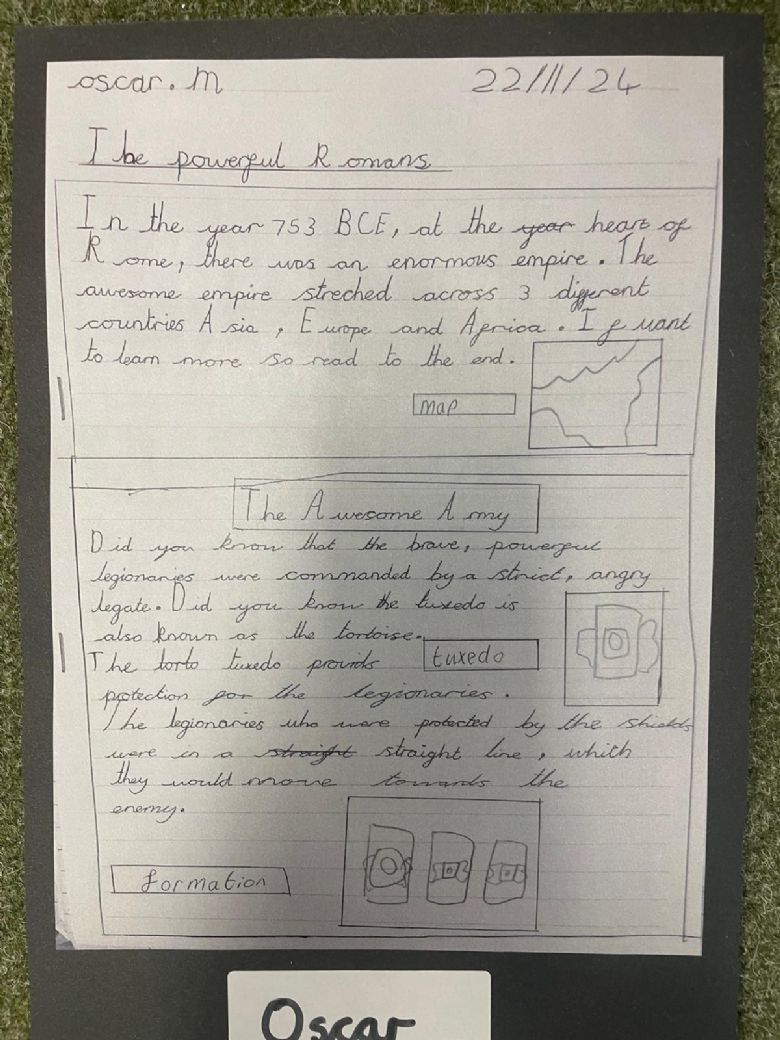 oscar. M
22/11/24
The powerful Romans
In the year 753 BCE, at the year heart of
Rome, there was an enormous empire. The
awesome empire streched across 3 different
countries Asia, Europe and Africa. If want
to learn more so read to the end.
map
The Awesome Army
Did you know that the brave, powerful
legionaries were commanded by a strict, angry
legate. Did you know the tuxedo is
also known as the tortoise.
The torto tuxedo provids
tuxedo
protection for the legionaries.
The legionaries who were protected by the shields
were in a straight straight line, which
they would move towards the
enemy.
formation
Oscar